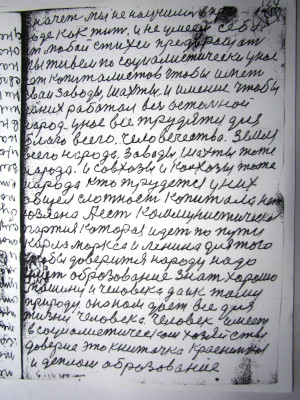 значет мы не научили
воде как жит, и не умеем себя
от любой стихеи предохранит
Мы живем по социалистически у нас
нет копиталистов чтобы имет
сваи заводы, шахты и имение чтобы
на них работал вся остолной
народ у нас все трудятся для
благо всего человечества. Земля
всего народа, заводы, шахты тоже
народа. и совхозы и колхозы тоже
народа кто трудетса у них
общея
хозяена. Лест Коммунистическо
партия которая идет по пути
карла маркса и ленина для того
чтобы доверится народу надо
имет оброзование знат хорошо
машину и человека да и к таму
природу она нам дает все для
жизни человека. Человек имеет
в социолистическом хозяйстве
доверие это книжочка
и детям оброзование